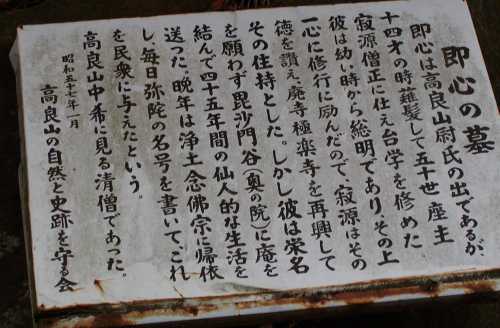 即心の墓
即心は高良山尉氏の出であるが、
十四才の時薙髪して五十世座主
寂源僧正に仕え台学を修めた
彼は幼い時から総明であり、その上
一心に修行に励んだので、寂源はその
徳を讃え、廃寺極楽寺を再興して
その住持とした。しかし彼は栄名
を願わず毘沙門谷(奥の院)に庵を
結んで四十五年間の仙人的な生活を
送った。晩年は浄土念佛宗に帰依
し、毎日弥陀の名号を書いて、これ
を民衆に与えたという。
高良山中希に見る清僧であった。
昭和五十七年一月
高良山の自然と史跡を守る会